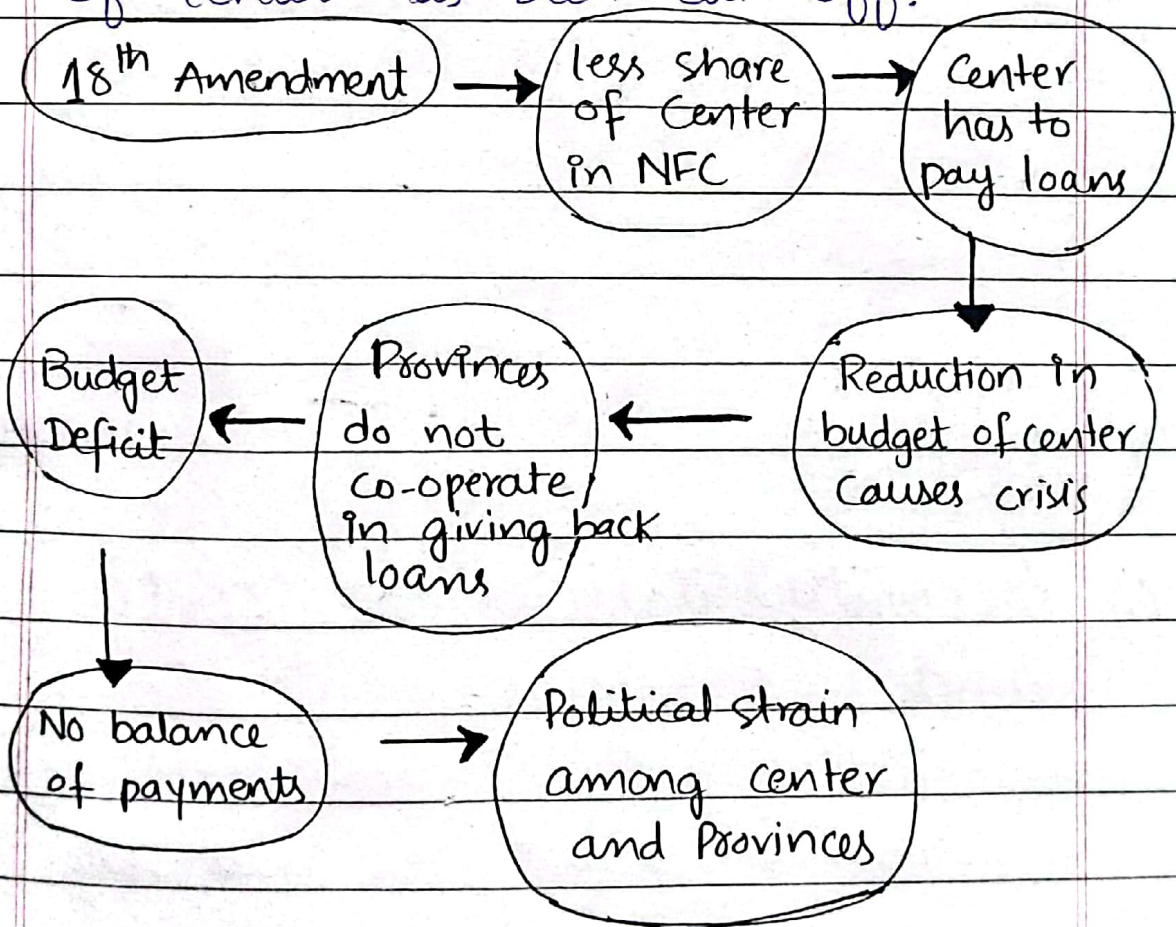 18th Amendment
less share
of Center
in NFC
Center
has to
pay loans
Reduction in
budget of center
Causes crisis
Provinces
do not
co-operate
in giving back
loans
Budget
Deficit
No balance
of payments
Political strain
among center
and Provinces